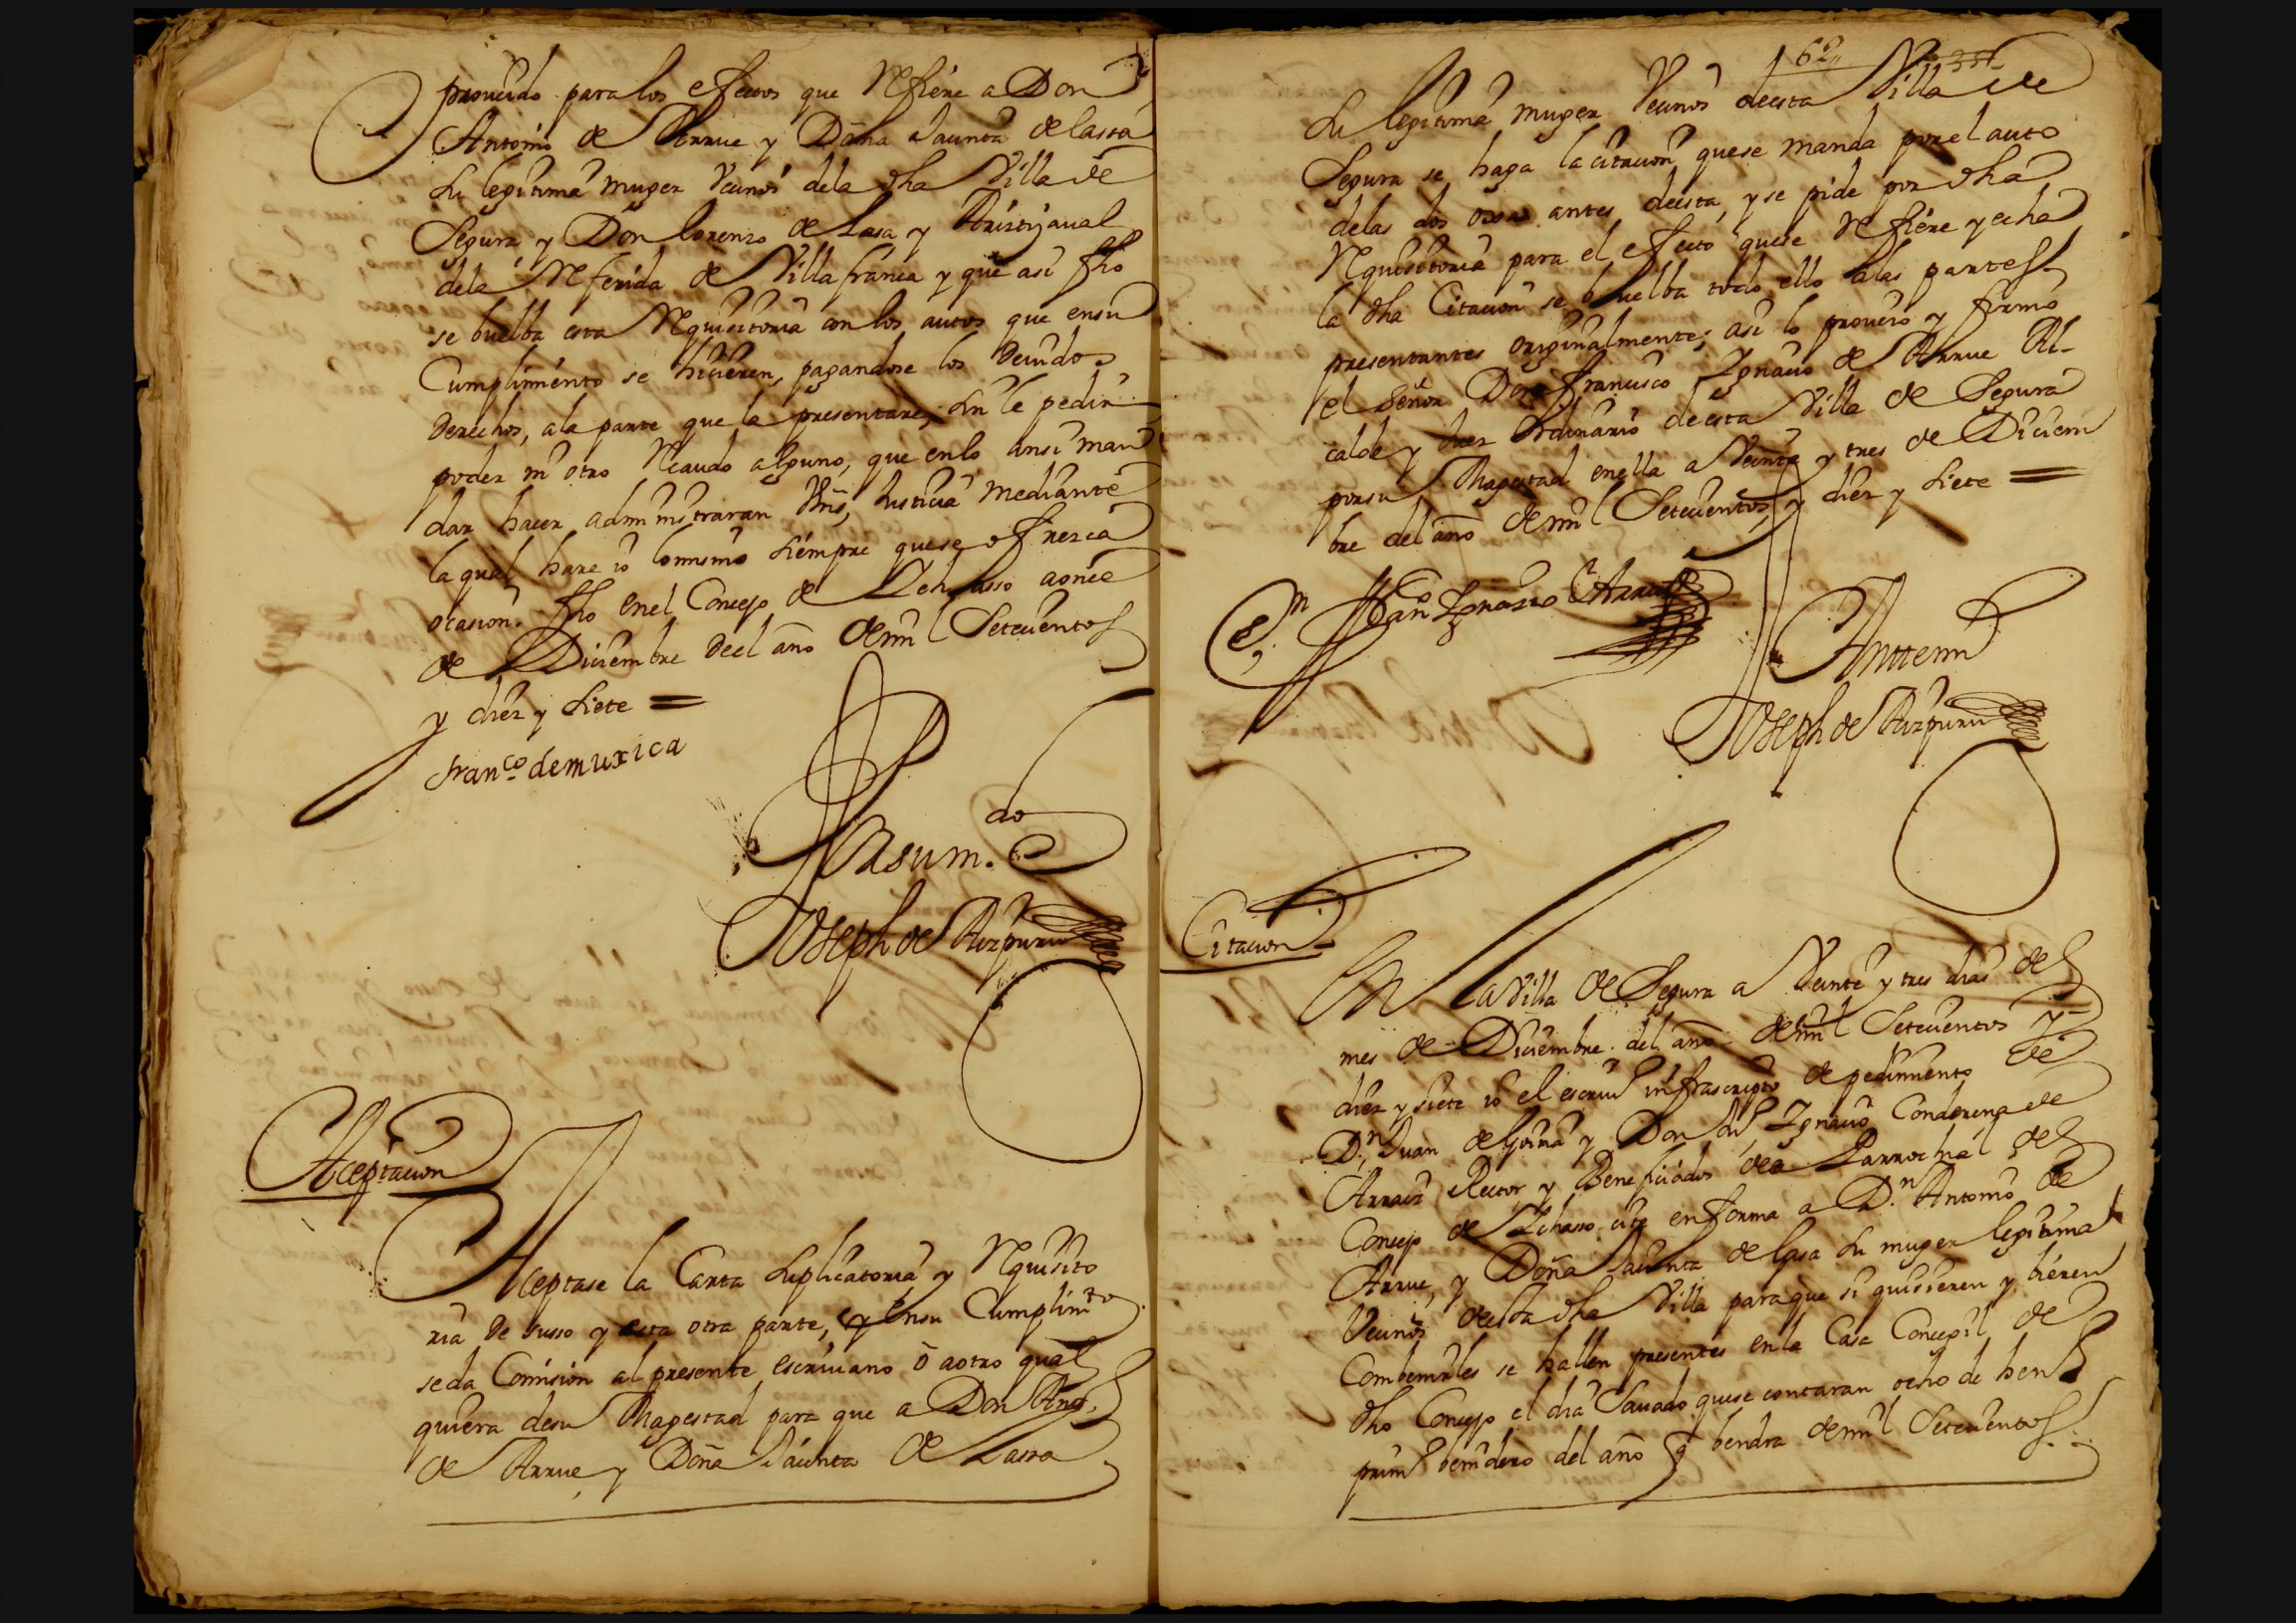 proueido para los efectos que Refiére a Don
Antonio de Arrue y Doña Jacinta de lassa
su legitima muger vecinos dela dha Villa de
Segura, y Don lorenzo de Lasa y Aristijaual
dela Referida de Villafranca y que asi fho
se buelba esta Requisitoria con los autos que en su
Cumplimiento se hicieren, pagandose los deuidos
derechos, ala parte que la presentare, sin le pedir
poder ni otro Recaudo alguno, que enlo ansi man
dar hacer administraran Vms, Justicia mediante
la qual hare io lo mismo siempre quese ofrezca
ocasion. fho enel Concejo de Lehasso aonce
de Diciembre deel año de mil Setecientos
y diez y siete =
Franco demuxica
Por su mdo
Joseph de Aizpuru
Aceptacion
Aceptase la Carta suplicatoria y Requisito
ria de susso y esta otra parte, y en su Cumplimto
seda Comision al presente escriuano ò aotro qual
quiera desu Magestad para que a Don Anto
de Arrue, y Doña Jacinta de Lassa
62
351
su legitima muger vecinos deesta Villa de
Segura se haga la citacion quese manda por el auto
delas dos oxas antes deesta, y se pide por dha
Requisitoria para el efecto quese Refiére y echa
la dha Citacion se buelba todo ello alas partes
presentantes originalmente; asi lo proueio y firmó
el Señor Don Francisco Ignacio de Arrue Al-
calde y Juez Ordinario deesta Villa de Segura
por su Magestad enella a Veinte y tres de Diciem
bre del año de mil Setecientos, y diez y siete =
Dn Franco Ignazio de Arrue
Anttemi
Joseph de Aizpuru
Citacion
En la Villa de Segura a Veinte y tres dias del
mes de Diciembre del año de mil Setecientos y
diez y siete io el escriuo infrascripto de pedimiento de
Dn Juan de Goena y Don Ju Ignacio Conderena de
Arraiz Rector y Beneficiados dela Parrochial del
Concejo de Lehasso cite en forma a Dn Antonio de
Arrue, y Doña Jacinta de lasa su muger legitima
Vecinos deesta dha Villa paraque si quisieren y bieren
Combenirles se hallen presentes en la Casa Concegil de
dho Concejo el dia Sauado quese contaran ocho de hen
primo benidero del año q bendra de mil Setecientos